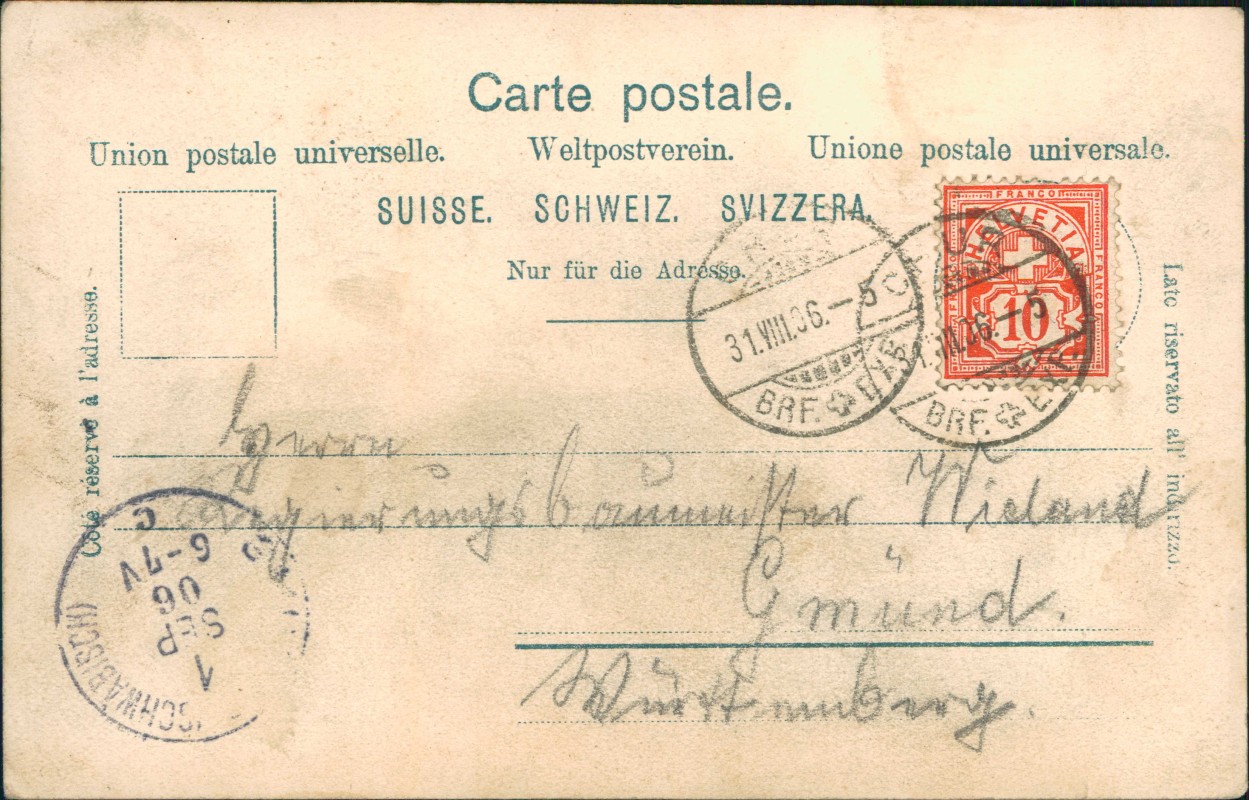 Carte postale.
Union postale universelle. Weltpostverein. Unione postale universale.
SUISSE. SCHWEIZ. SVIZZERA.
Nur für die Adresse.
Côté réservé à l'adresse.
Lato riservato all' indirizzo.
FRANCO
HELVETIA
FRANCO
10
31.VIII.06.-5
BRF. EXP.
CHU
VIII.06.-5
BRF. EXP.
Herrn
Regierungsbaumeister Wieland
Gmünd.
Württemberg.
(SCHWÄBISCH)
1
SEP
06
6-7V